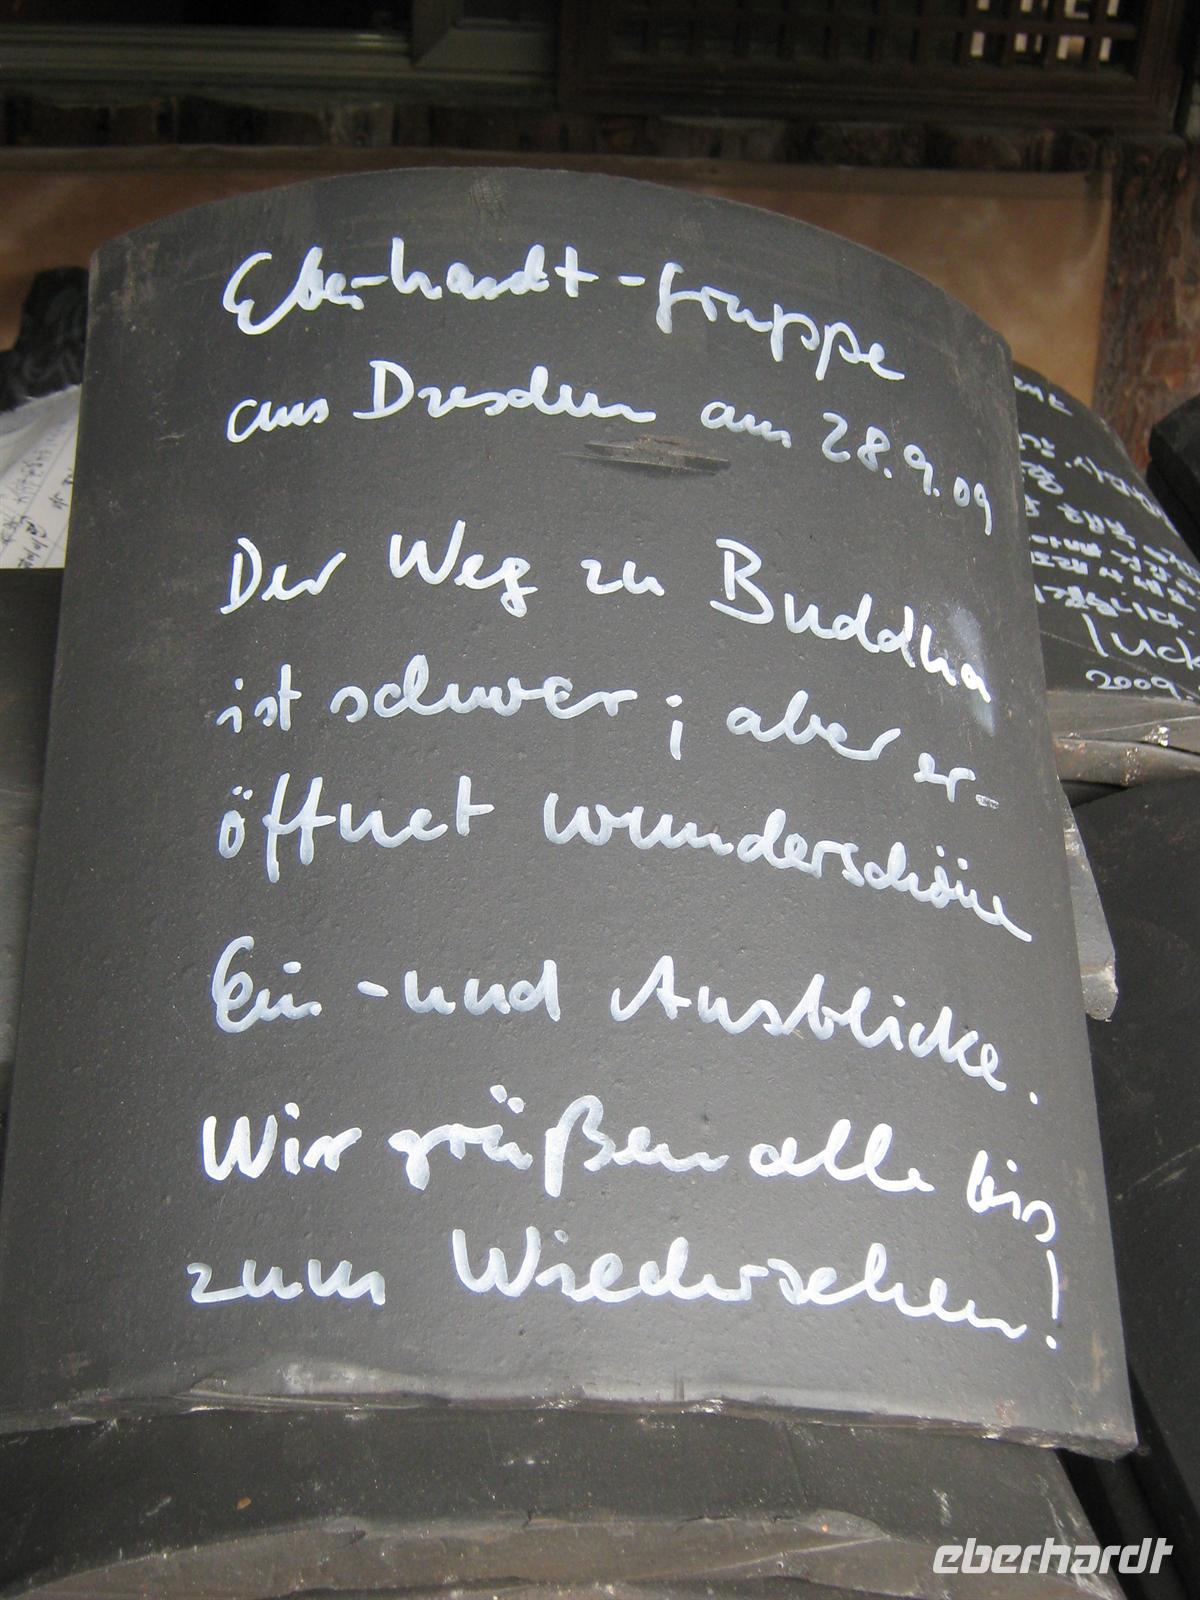 Eberhardt-Gruppe
aus Dresden am 28.9.09
Der Weg zu Buddha
ist schwer; aber er-
öffnet wunderschöne
Ein-und Ausblicke.
Wir grüßen alle bis
zum Wiedersehen!
luck
2009.
eberhardt